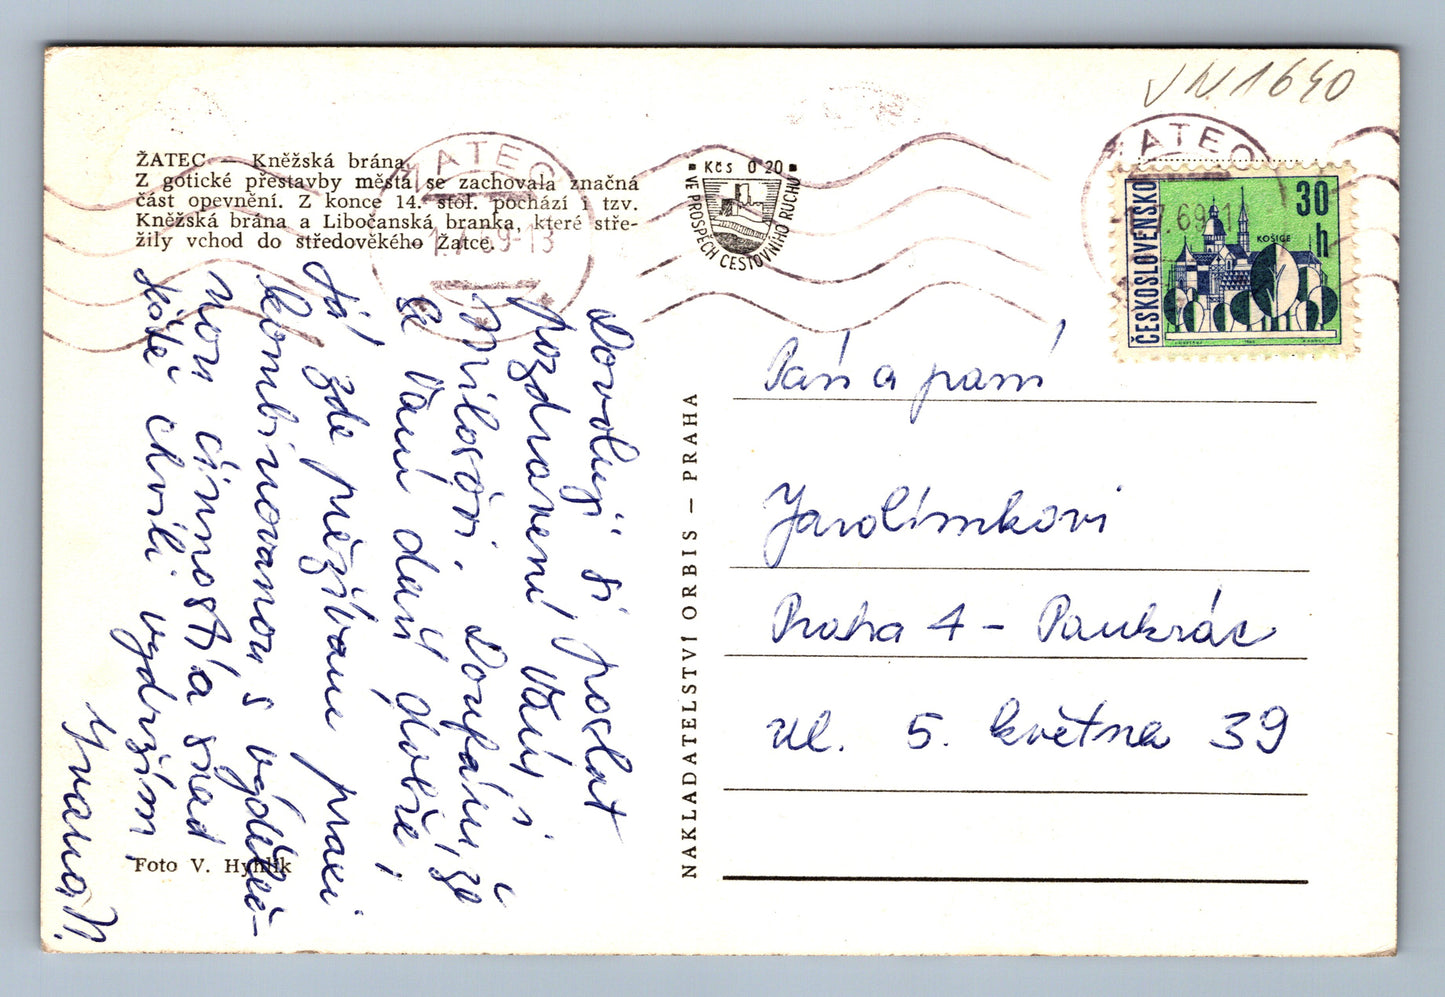 VN 1640
ŽATEC — Kněžská brána.
Z gotické přestavby města se zachovala značná
část opevnění. Z konce 14. stol. pochází i tzv.
Kněžská brána a Libočanská branka, které stře-
žily vchod do středověkého Žatce.
ŽATEC
1.7.69-13
Kčs 0 20
VE PROSPĚCH CESTOVNÍHO RUCHU
ŽATEC
.7.69-1
ČESKOSLOVENSKO
30
h
KOŠICE
Dovoluji si poslat
pozdravení Vám i
Milošovi. Doufám, že
se Vám daří dobře i
Já zde prožívám praxi
kombinovanou s výděleč-
nou činností a snad
ještě chvíli vydržím.
Ivana N.
Foto V. Hyhlík
NAKLADATELSTVÍ ORBIS — PRAHA
Pán a paní
Jarolímkovi
Praha 4 - Pankrác
ul. 5. května 39